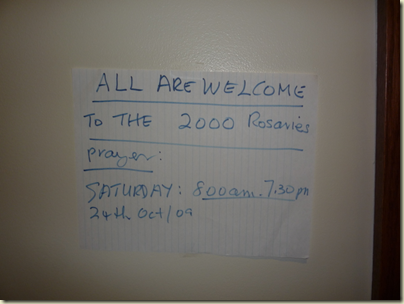 ALL ARE WELCOME
To THE 2000 Rosaries
prayer:
SATURDAY: 800am. 7.30pm
24th Oct/09